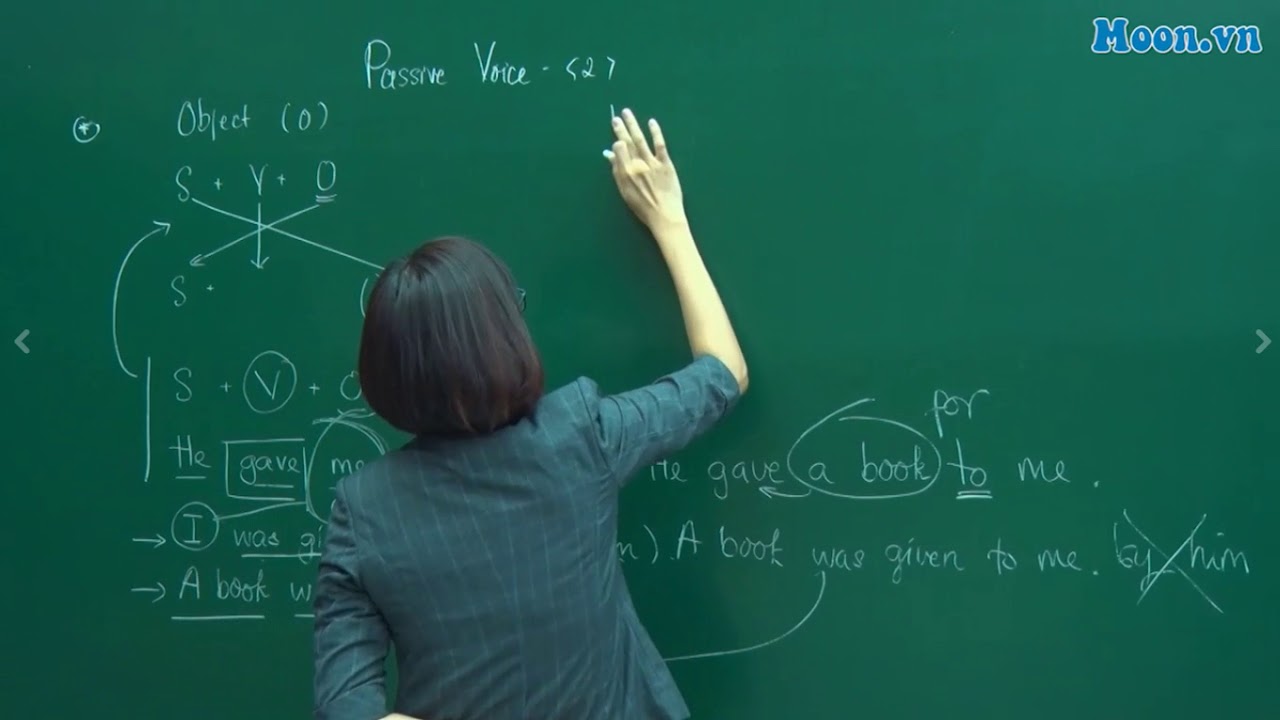 Moon.vn
Passive Voice - <2>
* Object (O)
S + V + O
S +
S + V + O
He gave me He gave a book to me.
for
→ I was m). A book was given to me. by him
→ A book